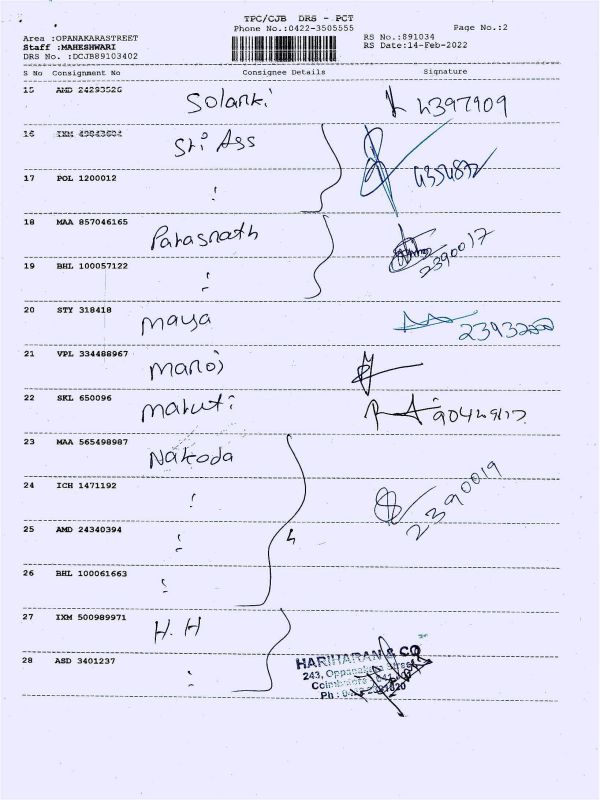 TPC/CJB DRS - PCT
Phone No.:0422-3505555
Page No.:2
Area :OPANAKARASTREET
Staff :MAHESHWARI
DRS No. :DCJB89103402
RS No.:891034
RS Date:14-Feb-2022
S No Consignment No Consignee Details Signature
15 AMD 24293526 Solanki 4397909
16 IXM 49843604 Sri Ass
17 POL 1200012 "
18 MAA 857046165 Parasnath 2390017
19 BHL 100057122 "
20 STY 318418 Maya
21 VPL 334488967 Manoj
22 SKL 650096 Maruti
23 MAA 565498987 Nakoda
24 ICH 1471192 " 2390019
25 AMD 24340394 " 4
26 BHL 100061663 "
27 IXM 500989971 H.H
28 ASD 3401237 "
HARIHARAN & CO
243, Street
Coimbatore
Ph :